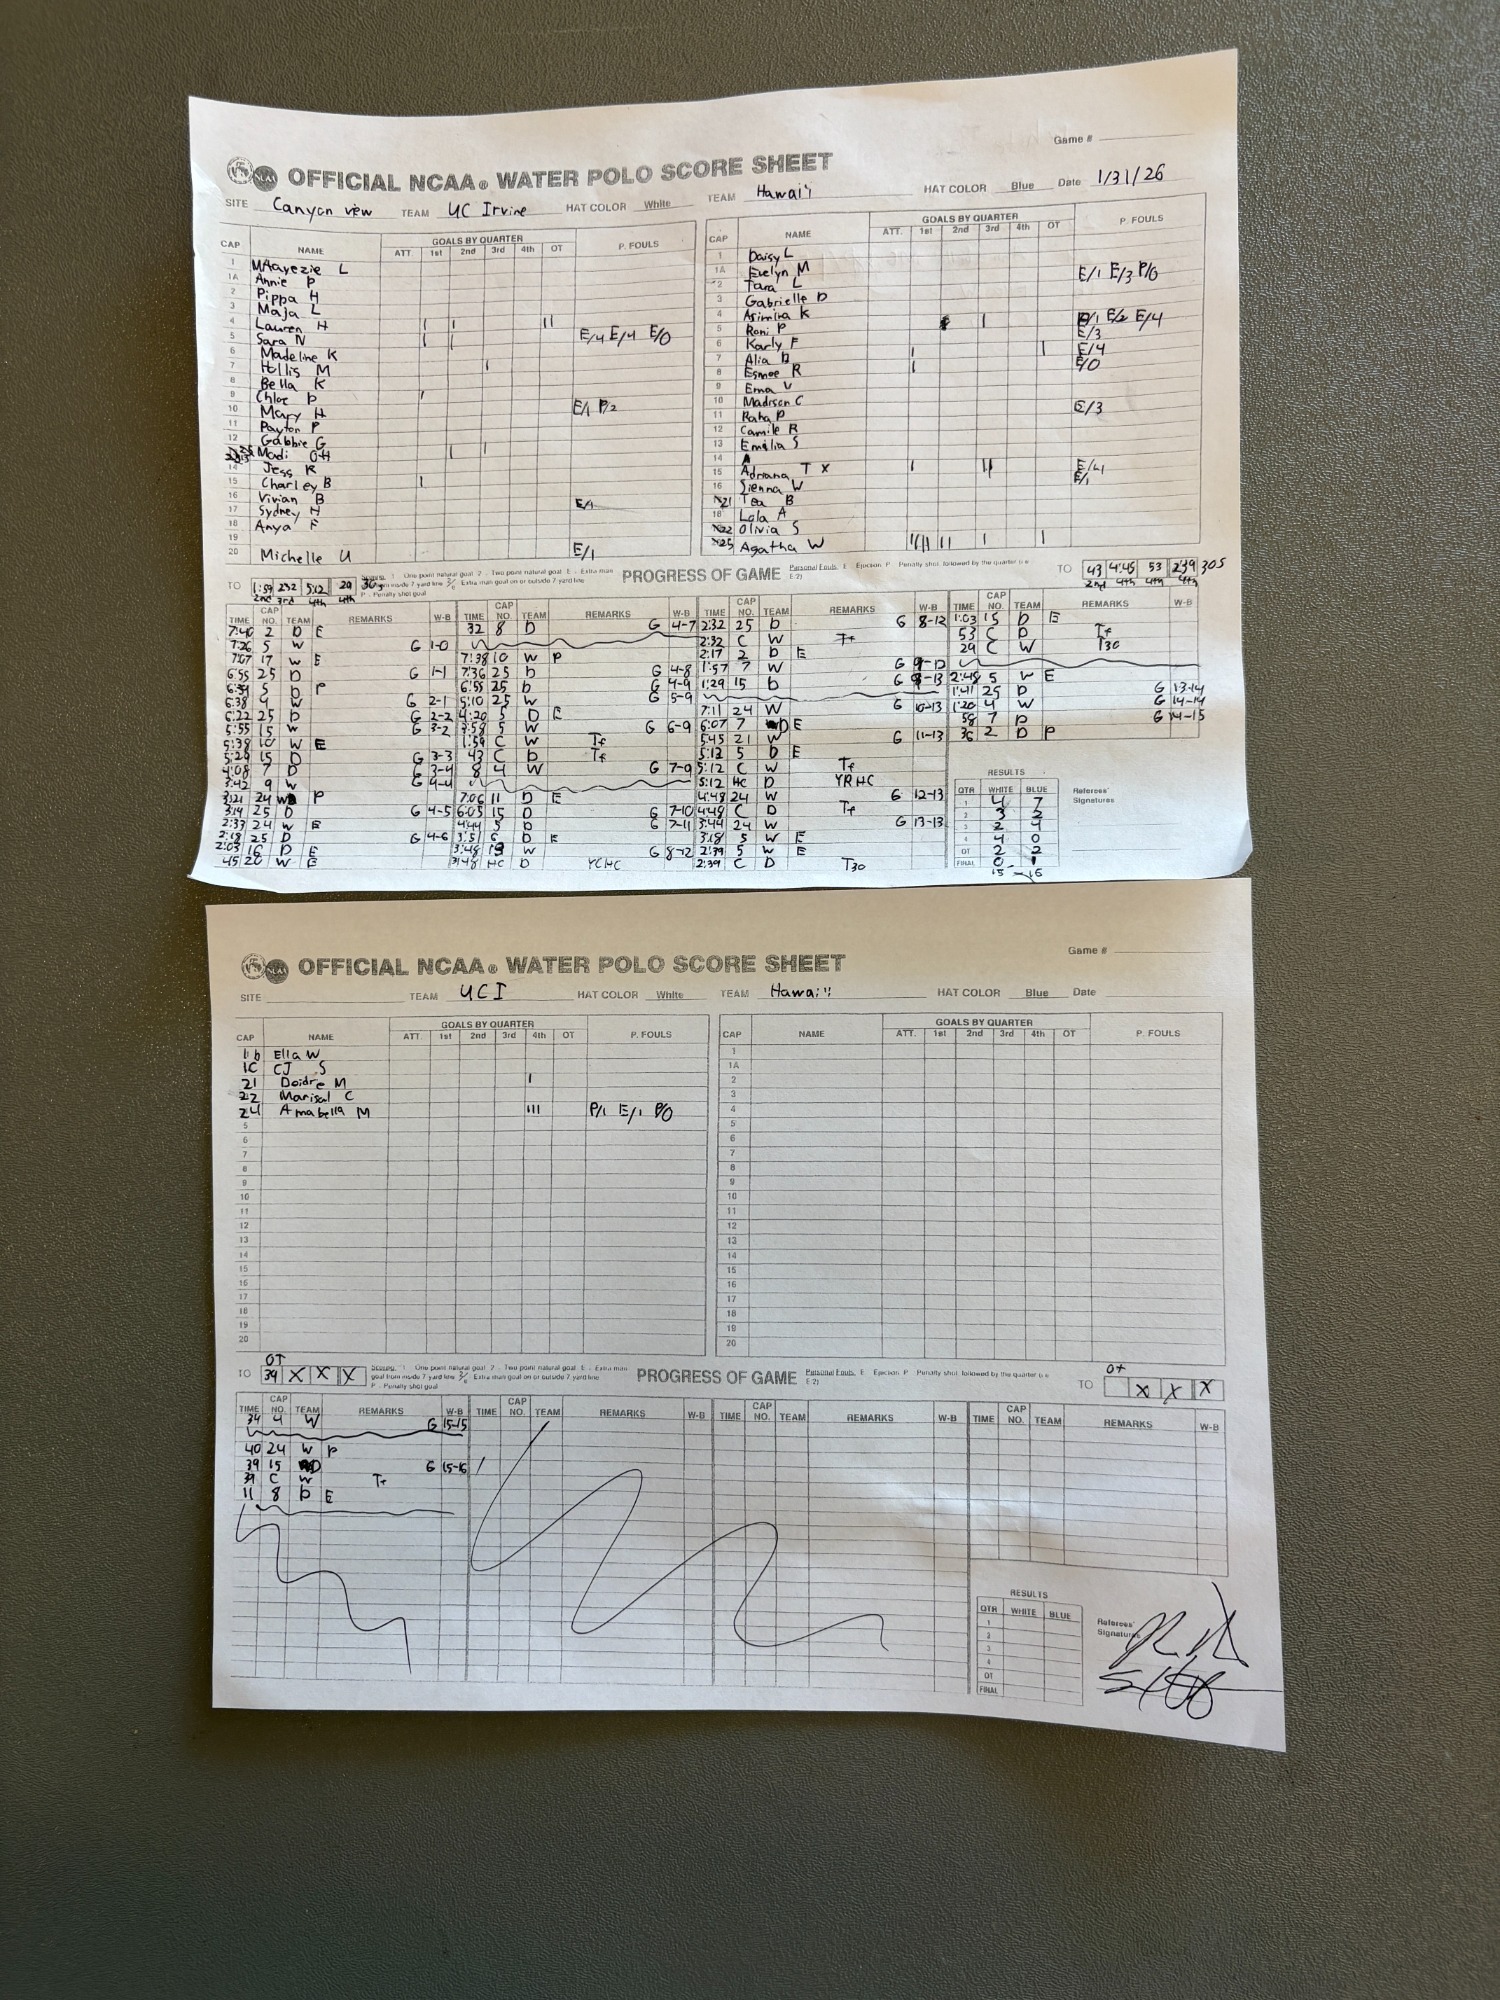 Game #
OFFICIAL NCAA® WATER POLO SCORE SHEET
SITE Canyon view TEAM UC Irvine HAT COLOR White TEAM Hawai'i HAT COLOR Blue Date 1/31/26
GOALS BY QUARTER
CAP NAME ATT. 1st 2nd 3rd 4th OT P. FOULS
1 L
1A Annie P
2 Pippa H
3 Maja L
4 Lauren H
5 Sara N E/4 E/4 E/0
6 Madeline K
7 Hollis M
8 Bella K
9 Chloe P
10 Mary H E/1 P/2
11 Payton P
12 Gabbie G
Madi OH
14 Jess R
15 Charley B
16 Vivian B
17 Sydney H E/1
18 Anya F
19
20 Michelle U E/1
GOALS BY QUARTER
CAP NAME ATT. 1st 2nd 3rd 4th OT P. FOULS
1 Daisy L
1A Evelyn M
2 Tara L E/1 E/3 P/0
3 Gabrielle D
4 Asimina K
5 Roni P P/1 E/2 E/4
6 Karly F E/3
7 Alia B E/4
8 Esmee R E/0
9 Ema V
10 Madison C
11 Paha P E/3
12 Camile R
13 Emilia S
14
15 Adriana T X E/4
16 Sienna W E/1
21 Tea B
18 Lola A
22 Olivia S
25 Agatha W
TO 1:59 2:32 5:12 29
2nd 3rd 4th 4th
PROGRESS OF GAME
TO 43 4:48 53 2:39 305
2nd 4th 4th
TIME CAP NO. TEAM REMARKS W-B
7:40 2 D E
7:26 5 W G 1-0
7:07 17 W E
6:55 25 D G 1-1
6:39 5 D P
6:38 4 W G 2-1
6:22 25 D G 2-2
5:55 15 W G 3-2
5:38 10 W E
5:29 15 D G 3-3
4:08 7 D G 3-4
3:42 9 W G 4-4
3:21 24 W P
3:19 25 D G 4-5
2:33 24 W E
2:18 25 D G 4-6
2:03 16 D E
45 20 W E
TIME CAP NO. TEAM REMARKS W-B
32 8 D G 4-7
7:38 10 W P
7:36 25 D G 4-8
6:55 25 D G 4-9
5:10 25 W G 5-9
4:20 5 D E
3:58 5 W G 6-9
1:59 C W Tf
43 C D Tf
8 4 W G 7-9
7:06 11 D E
6:05 15 D G 7-10
4:44 5 D G 7-11
3:51 6 D E
3:48 W G 8-12
3:48 HC D YCHC
TIME CAP NO. TEAM REMARKS W-B
2:32 25 D G 8-12
2:32 C W Tf
2:17 2 D E
1:57 7 W G 9-12
1:29 15 D G 9-13
7:11 24 W G 10-13
6:07 7 D E
5:45 21 W G 11-13
5:13 5 D E
5:12 C W Tf
5:12 HC D YRHC
4:48 24 W G 12-13
4:48 C D Tf
3:44 24 W G 13-13
3:18 5 W E
2:39 5 W E
2:39 C D T30
TIME CAP NO. TEAM REMARKS W-B
1:03 15 D E
53 C D Tf
29 C W T30
2:48 5 W E
1:41 25 D G 13-14
1:20 4 W G 14-14
58 7 D G 14-15
36 2 D P
RESULTS
QTR WHITE BLUE
1 4 7
2 3 2
3 2 4
4 4 0
OT 2 2
FINAL 0 1
15 - 16
Referees'
Signatures
Game #
OFFICIAL NCAA® WATER POLO SCORE SHEET
SITE TEAM UCI HAT COLOR White TEAM Hawai'i HAT COLOR Blue Date
GOALS BY QUARTER
CAP NAME ATT. 1st 2nd 3rd 4th OT P. FOULS
1b Ella W
1C CJ S
21 Doidre M
22 Marisol C
24 Annabella M P/1 E/1 P/0
5
6
7
8
9
10
11
12
13
14
15
16
17
18
19
20
GOALS BY QUARTER
CAP NAME ATT. 1st 2nd 3rd 4th OT P. FOULS
1
1A
2
3
4
5
6
7
8
9
10
11
12
13
14
15
16
17
18
19
20
OT
TO 39 X X X
PROGRESS OF GAME
OT
TO X X X
TIME CAP NO. TEAM REMARKS W-B
34 4 W G 15-15
40 24 W P
39 15 D G 15-16
39 C W Tf
11 8 D E
TIME CAP NO. TEAM REMARKS W-B
TIME CAP NO. TEAM REMARKS W-B
TIME CAP NO. TEAM REMARKS W-B
RESULTS
QTR WHITE BLUE
1
2
3
4
OT
FINAL
Referees'
Signatures